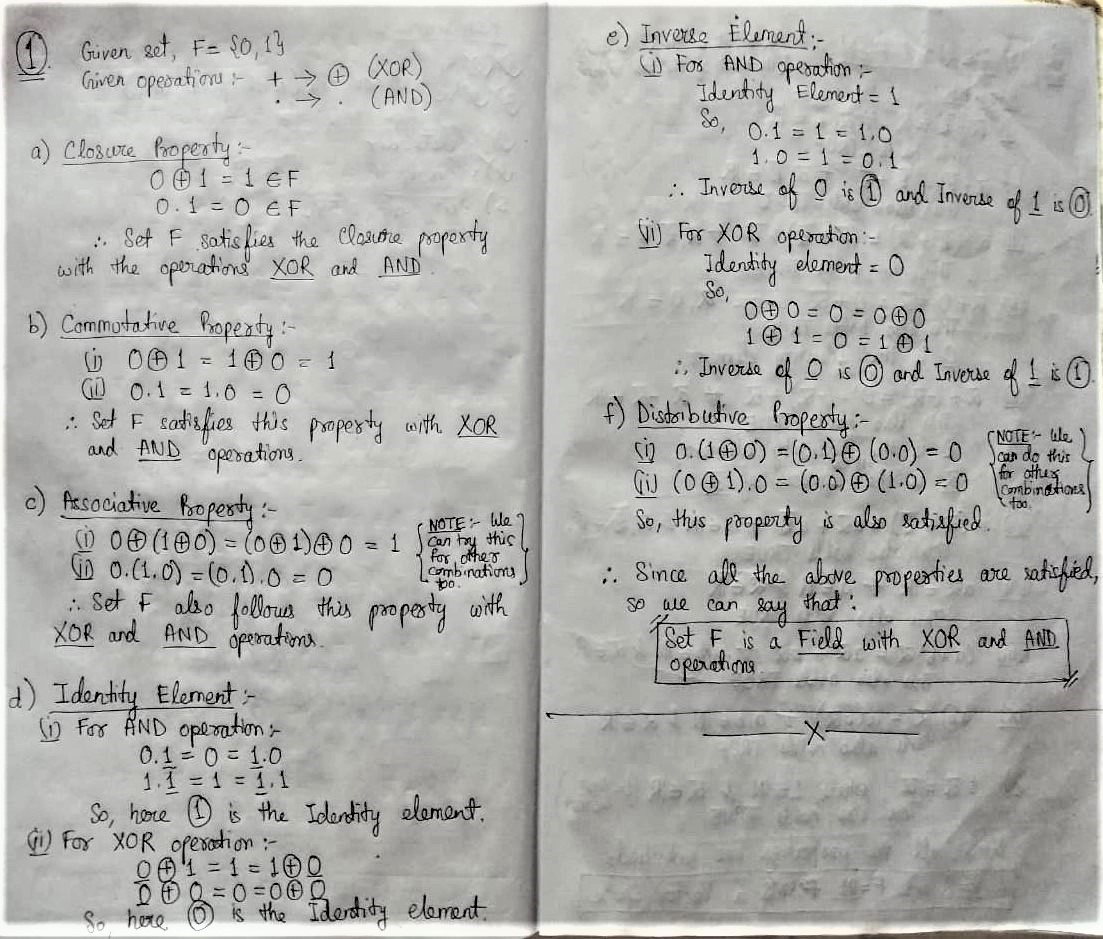 1. Given set, F= {0,1}
Given operations :- + → ⊕ (XOR)
. → . (AND)
a) Closure Property:-
0 ⊕ 1 = 1 ∈ F
0 . 1 = 0 ∈ F
∴ Set F satisfies the Closure property
with the operations XOR and AND.
b) Commutative Property:-
(i) 0 ⊕ 1 = 1 ⊕ 0 = 1
(ii) 0.1 = 1.0 = 0
∴ Set F satisfies this property with XOR
and AND operations.
c) Associative Property:-
(i) 0⊕(1⊕0) = (0⊕1)⊕0 = 1
(ii) 0.(1.0) = (0.1).0 = 0
NOTE:- We
can try this
for other
combinations
too.
∴ Set F also follows this property with
XOR and AND operations.
d) Identity Element:-
(i) For AND operation:-
0.1 = 0 = 1.0
1.1 = 1 = 1.1
So, here 1 is the Identity element.
(ii) For XOR operation:-
0 ⊕ 1 = 1 = 1 ⊕ 0
0 ⊕ 0 = 0 = 0 ⊕ 0
So, here 0 is the Identity element.
e) Inverse Element:-
(i) For AND operation:-
Identity Element = 1
So,
0.1 = 1 = 1.0
1.0 = 1 = 0.1
∴ Inverse of 0 is 1 and Inverse of 1 is 0.
(ii) For XOR operation:-
Identity element = 0
So,
0 ⊕ 0 = 0 = 0 ⊕ 0
1 ⊕ 1 = 0 = 1 ⊕ 1
∴ Inverse of 0 is 0 and Inverse of 1 is 1.
f) Distributive Property:-
(i) 0.(1⊕0) = (0.1)⊕(0.0) = 0
(ii) (0⊕1).0 = (0.0)⊕(1.0) = 0
NOTE:- We
can do this
for other
combinations
too.
So, this property is also satisfied.
∴ Since all the above properties are satisfied,
so we can say that:
Set F is a Field with XOR and AND
operations
X